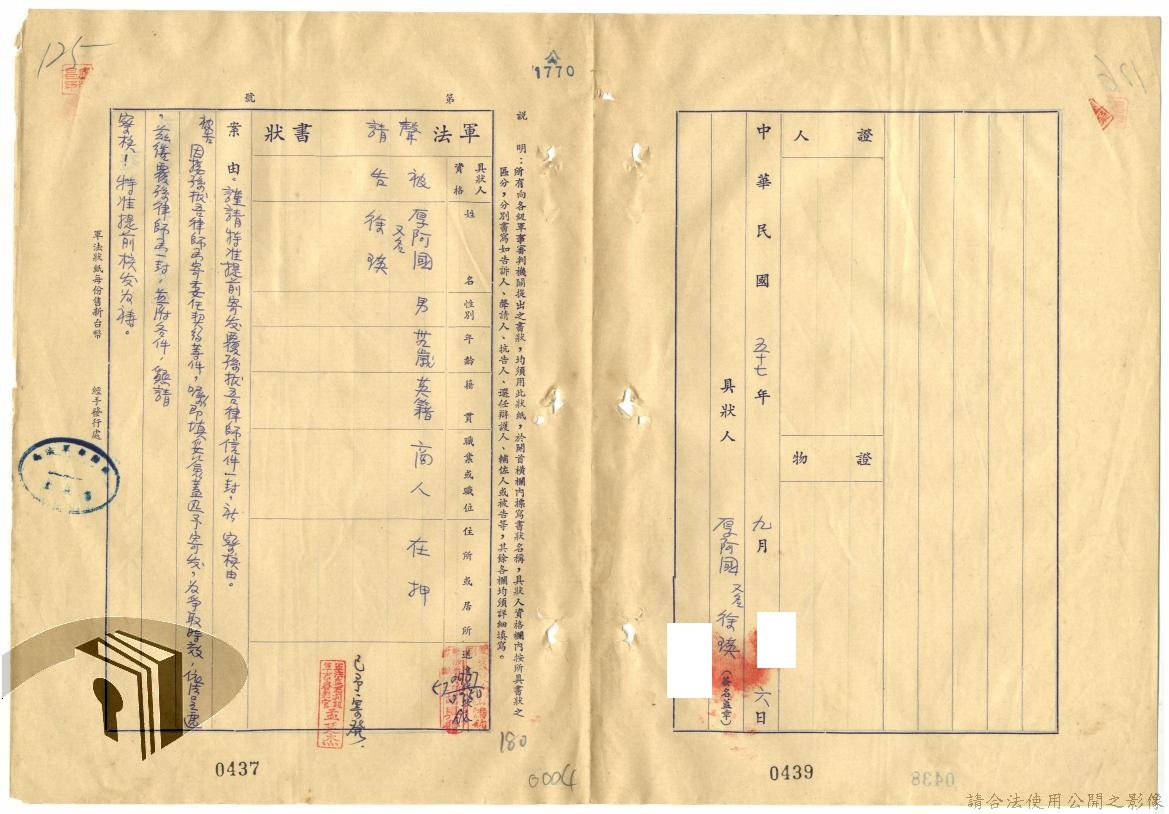 125
1770
第　號
說明：所有向各級軍事審判機關提出之書狀，均須用此狀紙，於開首橫欄內標寫書狀名稱，具狀人資格欄內按所具書狀之
區分，分別書寫如告訴人、聲請人、抗告人、選任辯護人、輔佐人或被告等，其餘各欄均須詳細填寫。
軍法聲請書狀
具狀人資格
姓名
性別
年齡
籍貫
職業或職位
住所或居所
被告
厚阿國
又名
徐瑛
男
英籍
商人
在押
已予寄發
案由。謹請特准提前寄发覆孫振吾律師信件一封，祈審核由。
被告因接孫振吾律師再寄委任契約等件，
，茲後覆孫律師函一封，並附各件，懇請
審核！特准提前核发为禱。
軍法狀紙每份售新台幣
經手發行處
180
0004
0437
證人
證物
中華民國五十七年九月六日
具狀人
厚阿國
又名
徐瑛
（簽名蓋章）
0439
0438
請合法使用公開之影像